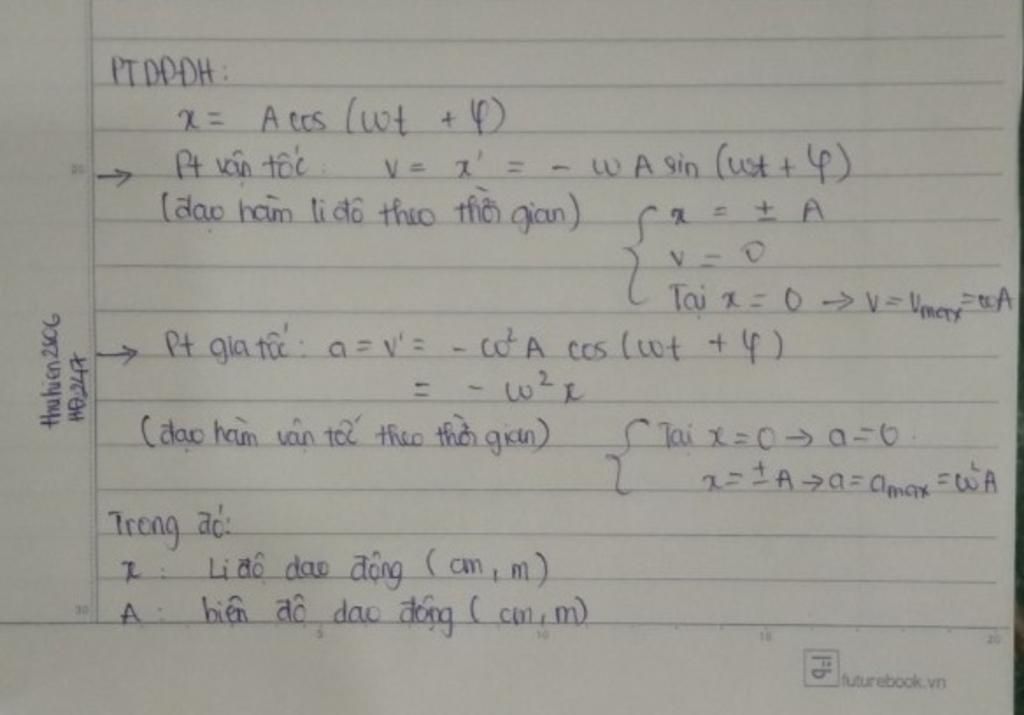 PTDĐĐH:
x = A cos (ωt + φ)
→ Pt vận tốc: v = x' = - ωA sin (ωt + φ)
(đạo hàm li độ theo thời gian) { x = ± A
v = 0
Tại x = 0 → v = vmax = ωA
→ Pt gia tốc: a = v' = - ω²A cos (ωt + φ)
= - ω²x
(đạo hàm vận tốc theo thời gian) { Tại x = 0 → a = 0.
x = ± A → a = amax = ω²A
Trong đó:
x : Li độ dao động (cm, m)
A : biên độ dao động (cm, m)
thuhien2306
HĐ247
30
5
10
15
20
futurebook.vn